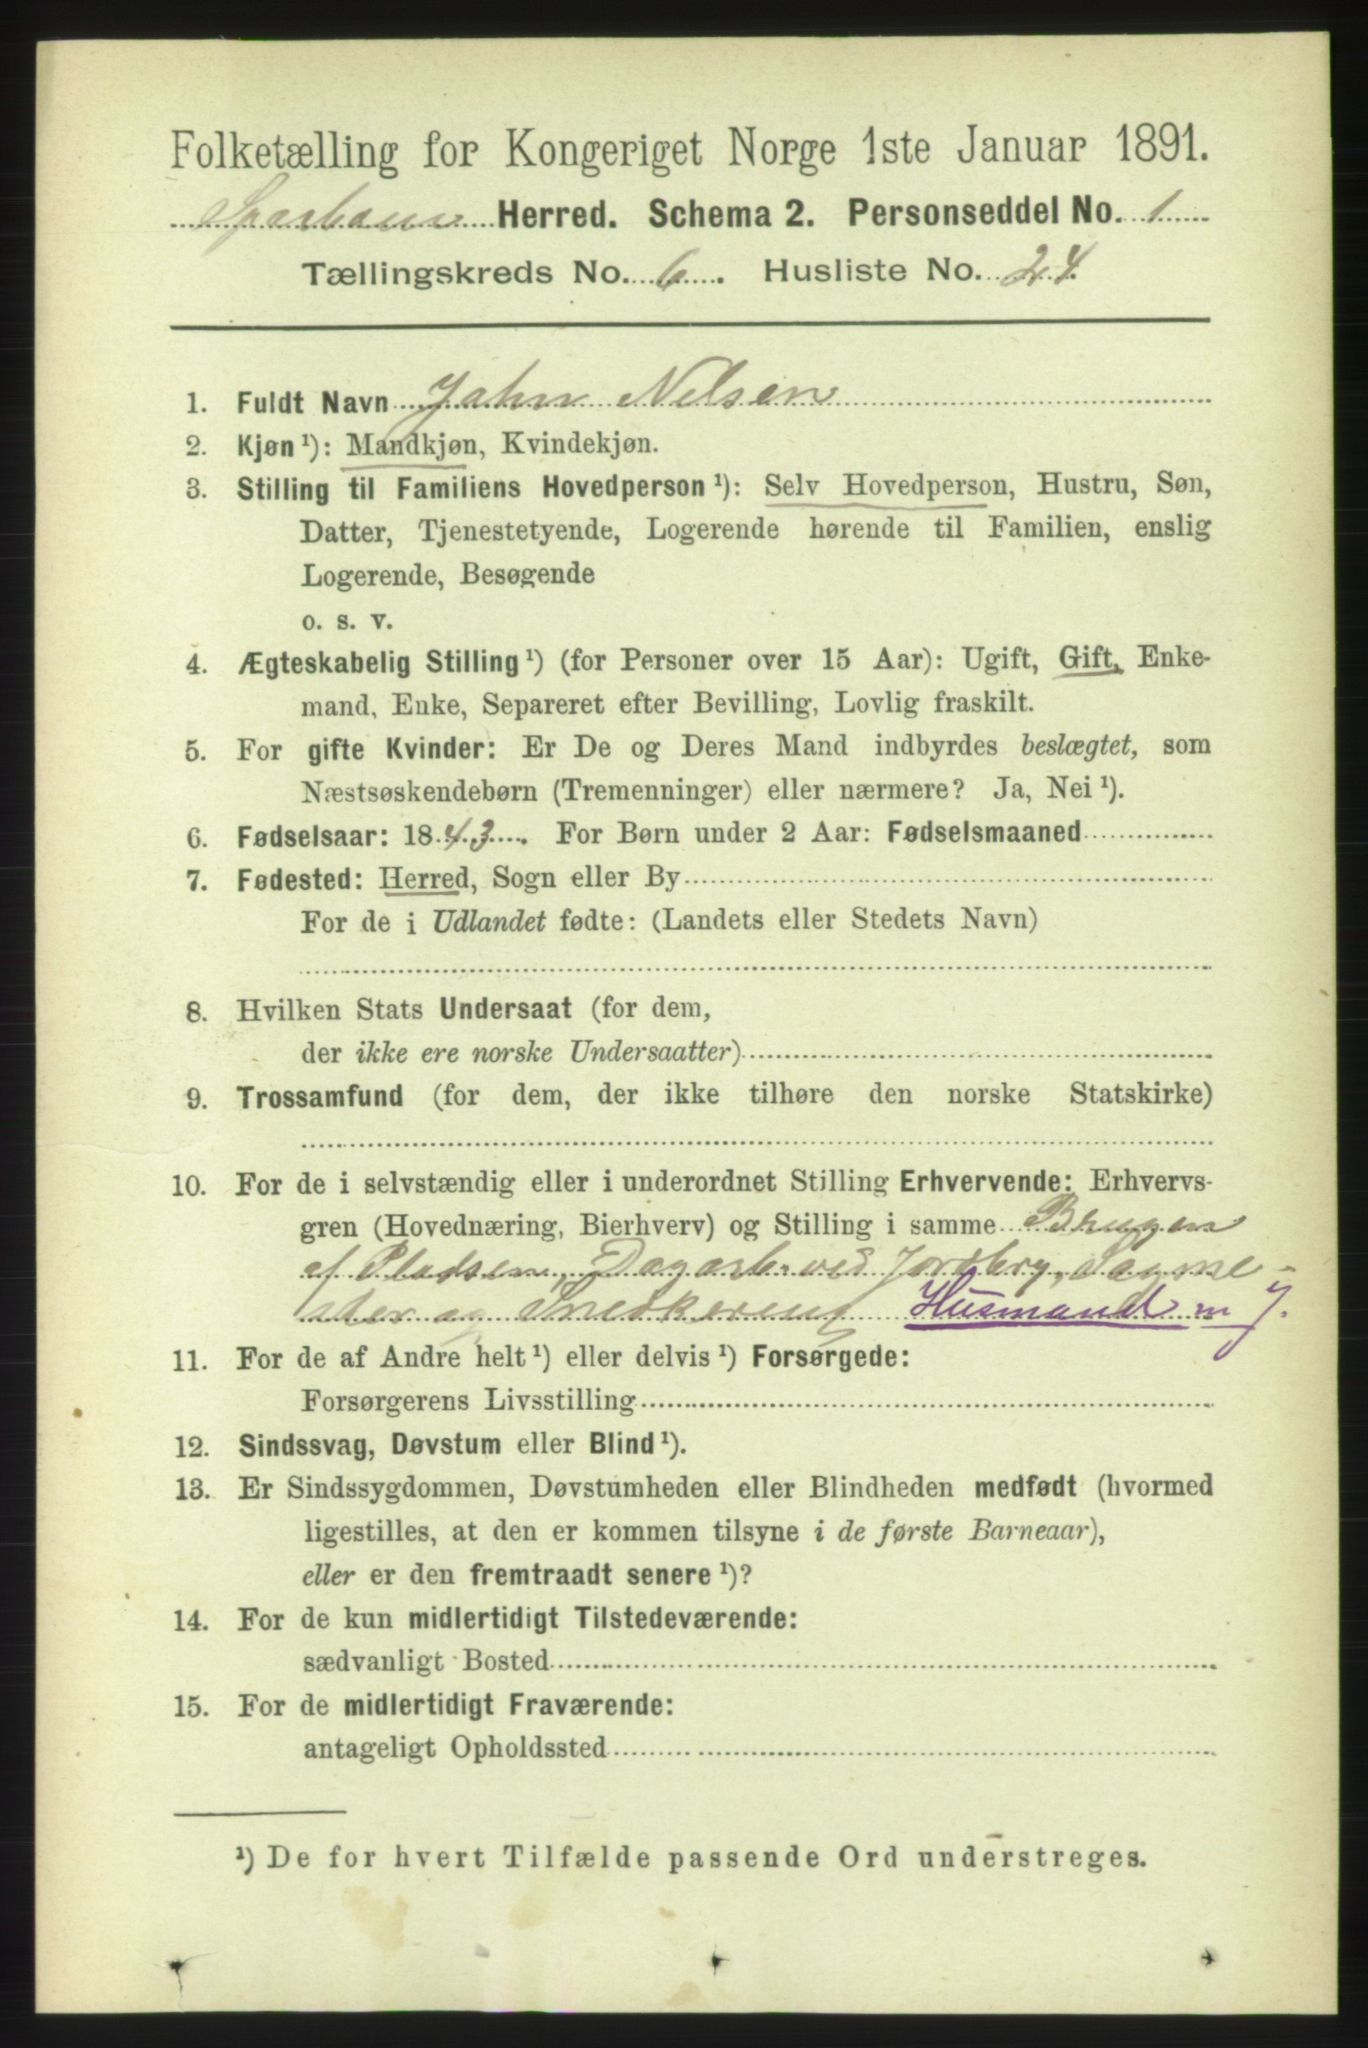 Folketælling for Kongeriget Norge 1ste Januar 1891.
Sparbuen Herred. Schema 2. Personseddel No. 1
Tællingskreds No. 6. Husliste No. 24.
1. Fuldt Navn Jahn Nelsen
2. Kjøn ¹): Mandkjøn, Kvindekjøn.
3. Stilling til Familiens Hovedperson ¹): Selv Hovedperson, Hustru, Søn,
Datter, Tjenestetyende, Logerende hørende til Familien, enslig
Logerende, Besøgende
o. s. v.
4. Ægteskabelig Stilling ¹) (for Personer over 15 Aar): Ugift, Gift, Enke-
mand, Enke, Separeret efter Bevilling, Lovlig fraskilt.
5. For gifte Kvinder: Er De og Deres Mand indbyrdes beslægtet, som
Næstsøskendebørn (Tremenninger) eller nærmere? Ja, Nei ¹).
6. Fødselsaar: 1843. For Børn under 2 Aar: Fødselsmaaned
7. Fødested: Herred, Sogn eller By
For de i Udlandet fødte: (Landets eller Stedets Navn)
8. Hvilken Stats Undersaat (for dem,
der ikke ere norske Undersaatter)
9. Trossamfund (for dem, der ikke tilhøre den norske Statskirke)
10. For de i selvstændig eller i underordnet Stilling Erhvervende: Erhvervs-
gren (Hovednæring, Bierhverv) og Stilling i samme Brugen
af Pladsen, Dagarb. ved Jordbrg, Sagme-
ster og Snedkering Husmand m J.
11. For de af Andre helt ¹) eller delvis ¹) Forsørgede:
Forsørgerens Livsstilling
12. Sindssvag, Døvstum eller Blind ¹).
13. Er Sindssygdommen, Døvstumheden eller Blindheden medfødt (hvormed
ligestilles, at den er kommen tilsyne i de første Barneaar),
eller er den fremtraadt senere ¹)?
14. For de kun midlertidigt Tilstedeværende:
sædvanligt Bosted
15. For de midlertidigt Fraværende:
antageligt Opholdssted
¹) De for hvert Tilfælde passende Ord understreges.